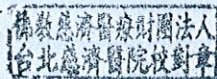 佛教慈濟醫療財團法人
台北慈濟醫院校對章